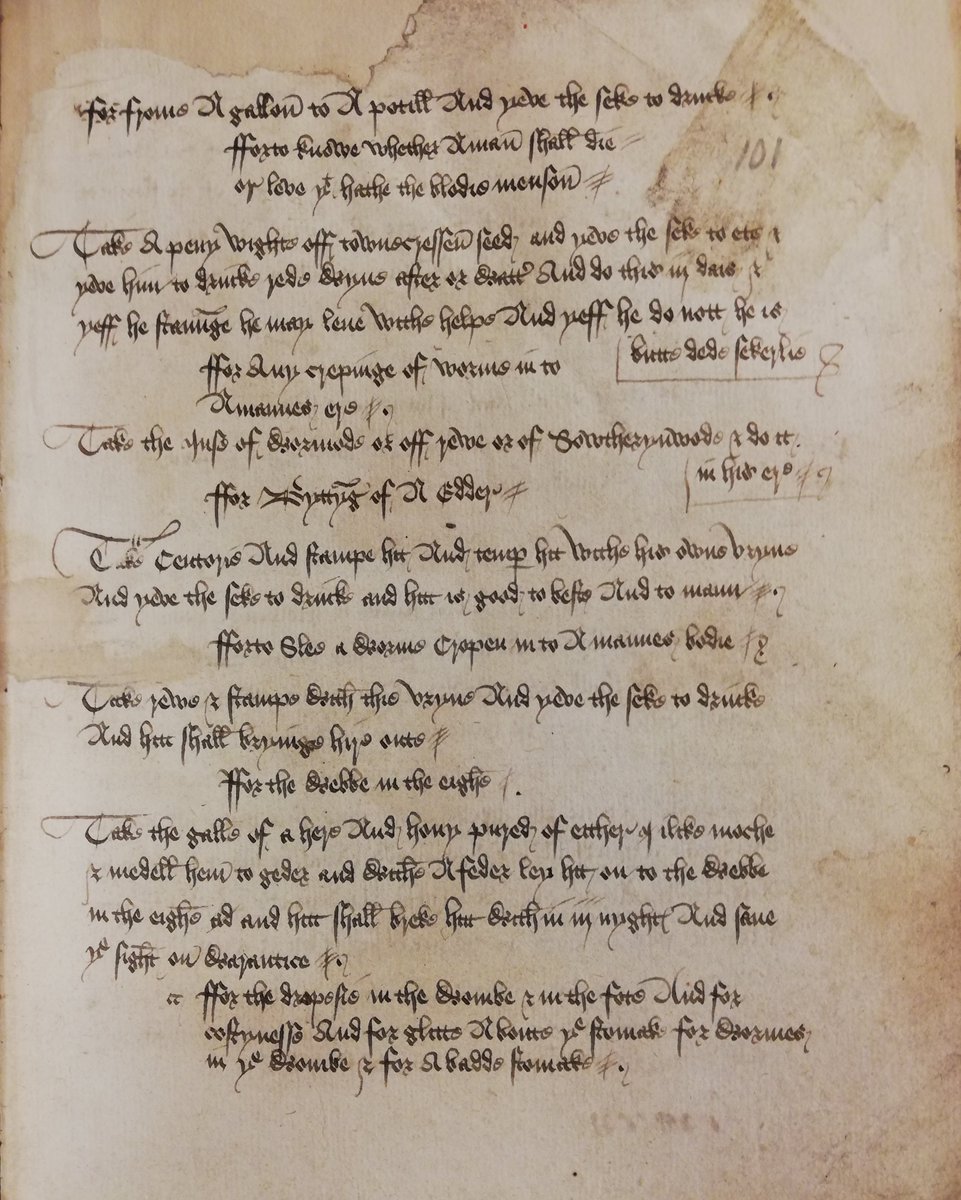 for frome A gallon to A potill And yeve the seke to drincke
101
fforto knowe whether A man shall die
or leve yt hathe the blodie menson
Take A peny wighte off towncressen seed and yeve the seke to ete &
yeve him to drincke rede wyne after or watter And do this iij dais &
yeff he staunge he may leve withe helpe And yeff he do nott he is
butte dede sekerlie
ffor Any crepinge of worme in to
A mannes ere
Take the Juse of wormode or off rewe or of Sowthernwode & do it
in his ere
ffor Byttyng of A Edder
Take Centorie And stampe hit And temper hit withe his owne vryne
And yeve the seke to drincke and hitt is good to beste And to mann
fforto Slee a worme Cropen in to A mannes bodie
Take rewe & stampe with this vryne And yeve the seke to drincke
And hitt shall brynge hire oute
ffor the webbe in the eighe
Take the galle of a here And hony pured of either ilike moche
& medell hem to geder and withe A feder ley hitt on to the webbe
in the eighe and hitt shall breke hitt with in iij nyght And save
ye sight on warantice
ffor the dropesie in the wombe & in the fote And for
costynesse And for glitte A boute ye stomak for wormes
in ye wombe & for A badde stomake